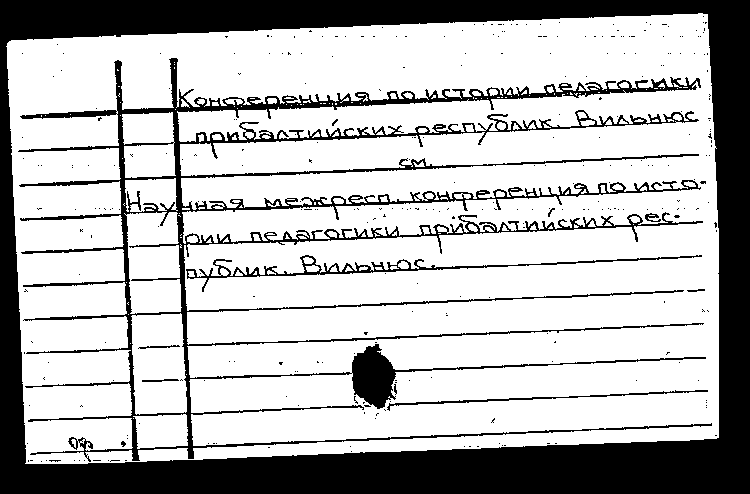 Конференция по истории педагогики
прибалтийских республик. Вильнюс
см.
Научная межресп. конференция по исто-
рии педагогики прибалтийских рес-
публик. Вильнюс.